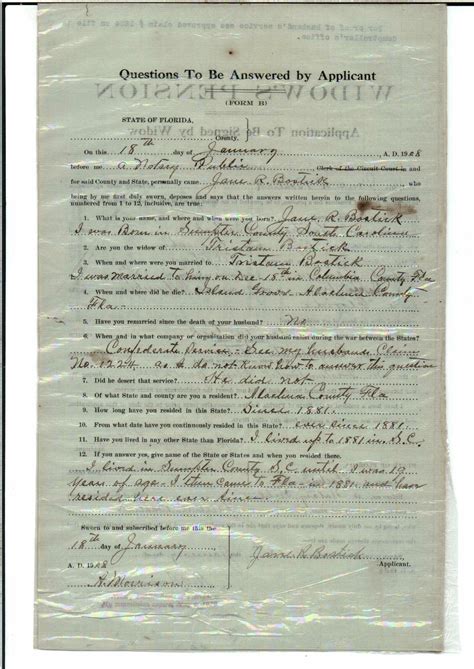 Questions To Be Answered by Applicant
(FORM B)
STATE OF FLORIDA,
County.
On this 18th day of January A. D. 1908
before me a Notary Public Clerk of the Circuit Court in and
for said County and State, personally came Jane R. Bostick who
being by me first duly sworn, deposes and says the answers written herein to the following questions,
numbered from 1 to 12, inclusive, are true:
1. What is your name, and where and when were you born? Jane R. Bostick
I was Born in Sumpter County South Carolina
2. Are you the widow of Tristam Bostick
3. When and where were you married to Tristam Bostick
I was married to him on Dec 18th in Columbia County Fla
4. When and where did he die? Island Grove Alachua County
Fla
5. Have you remarried since the death of your husband? No
6. When and in what company or organization did your husband enlist during the war between the States?
Confederate Service - See my husbands Claim
No. 1224. as I do not know how to answer this question
7. Did he desert the service? He did not
8. Of what State and county are you a resident? Alachua County Fla
9. How long have you resided in this State? Since 1881.
10. From what date have you continuously resided in this State? ever since 1881
11. Have you lived in any other State than Florida? I lived up to 1881 in S.C.
12. If you answer yes, give name of the State or States and when you resided there.
I lived in Sumpter County S.C. until I was 19
years of age - I then came to Fla - in 1881 and have
resided here ever since
Sworn to and subscribed before me this the
18th day of January
A. D. 1908
Jane R Bostick
Applicant.